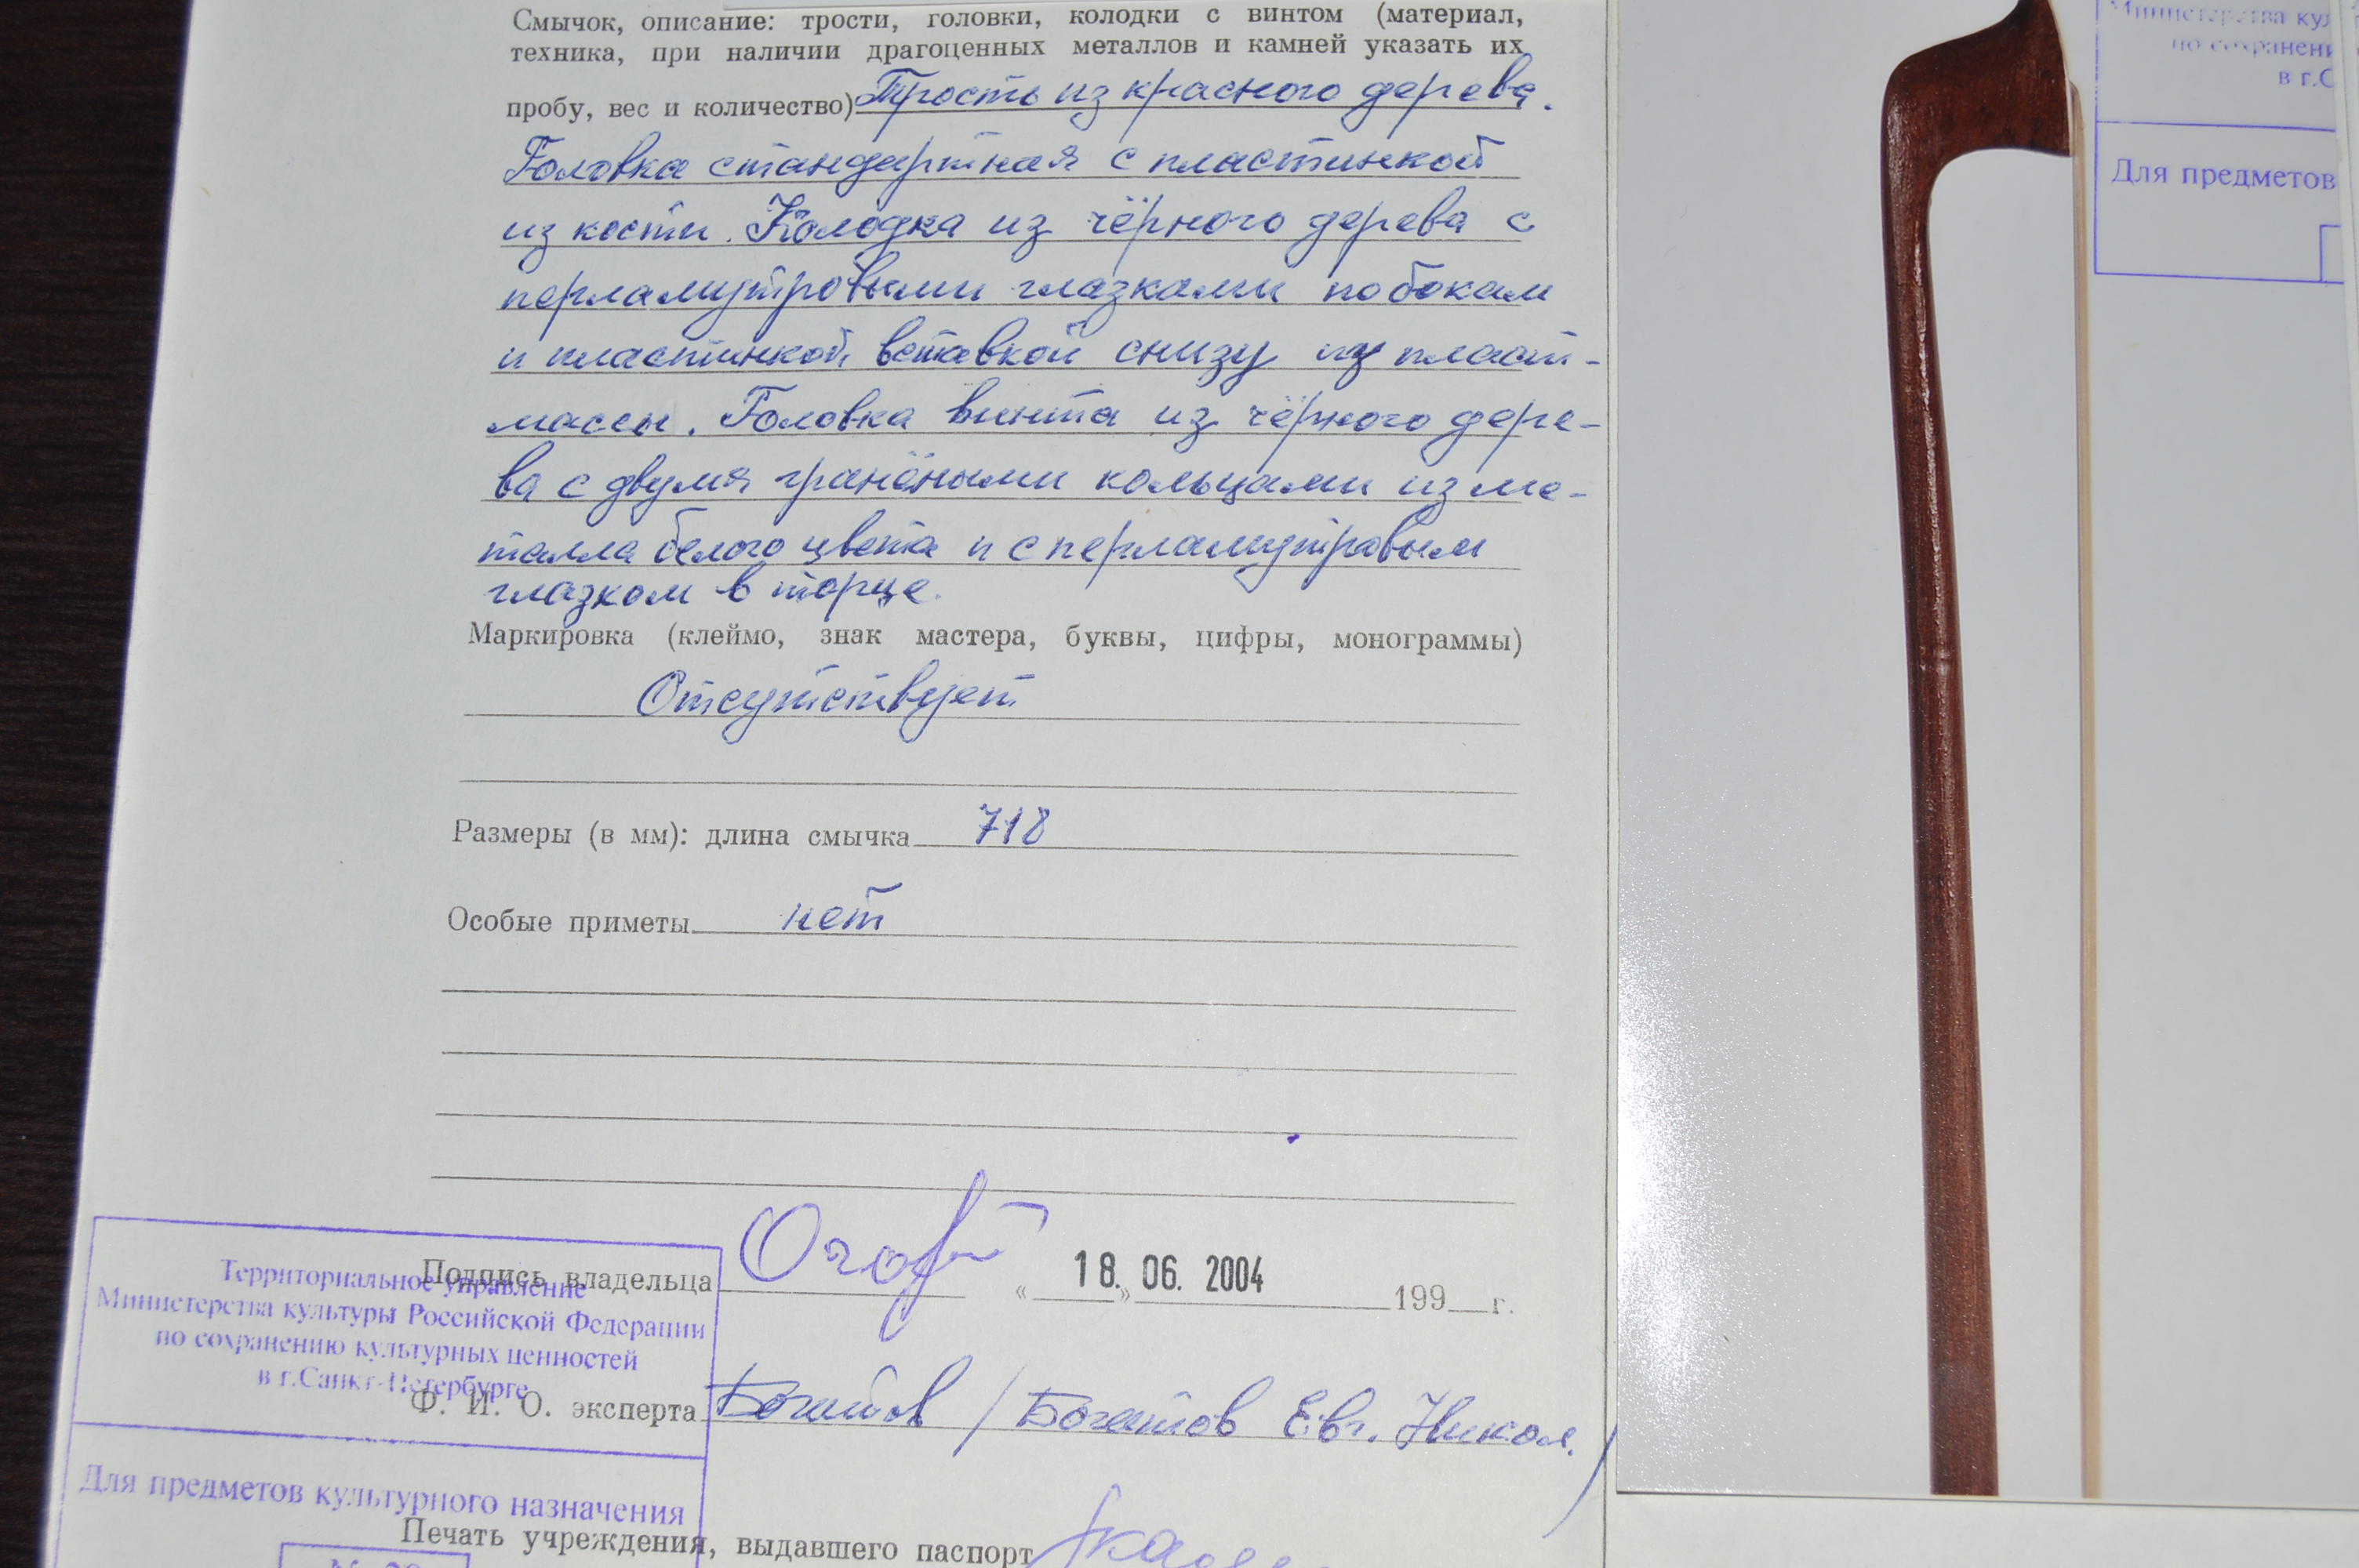 Смычок, описание: трости, головки, колодки с винтом (материал,
техника, при наличии драгоценных металлов и камней указать их
пробу, вес и количество) Трость из красного дерева.
Головка стандартная с пластинкой
из кости. Колодка из чёрного дерева с
перламутровыми глазками по бокам
и пластинкой вставкой снизу из пласт-
массы. Головка винта из чёрного дере-
ва с двумя гранёными кольцами из ме-
талла белого цвета и с перламутровым
глазком в торце.
Маркировка (клеймо, знак мастера, буквы, цифры, монограммы)
Отсутствует
Размеры (в мм): длина смычка 718
Особые приметы нет
Подпись владельца « 18. » 06. 2004 199 г.
Территориальное управление
Министерства культуры Российской Федерации
по сохранению культурных ценностей
в г.Санкт-Петербурге
Ф. И. О. эксперта Богатов / Богатов Евг. Никол. /
Для предметов культурного назначения
Печать учреждения, выдавшего паспорт
Министерства кул
по сохранени
в г.С
Для предметов